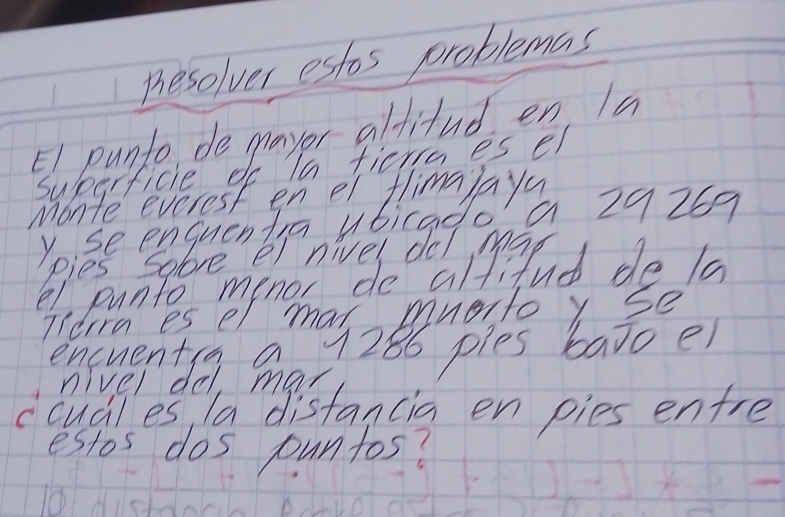 Resolver estos problemas
El punto de mayor altitud en la
superficie de la tierra es el
Monte everest en el Himalaya
y se enquentra ubicado a 29 269
pies sobre el nivel del mar
el punto menor de altitud de la
Tierra es el mar muerto y se
encuentra a 1286 pies bajo el
nivel del mar
¿cuál es la distancia en pies entre
estos dos puntos?
la distancia